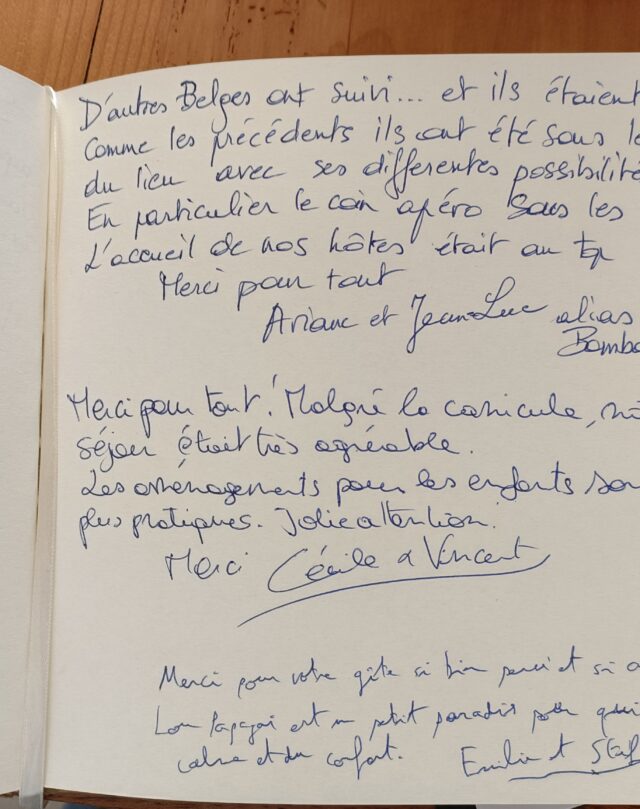 D'autres Belges ont suivi... et ils étaient
Comme les précédents ils ont été sous le
du lieu avec ses differentes possibilité
En particulier le coin apéro sous les
L'accueil de nos hôtes était au top
Merci pour tout
Ariane et Jean-Luc alias
Bomba
Merci pour tout! Malgré la canicule, no
séjour était très agréable.
Les aménagements pour les enfants son
plus pratiques. Jolie attention!
Merci Cécile & Vincent
Merci pour votre gîte si bien pensé et si a
Lou Papagai est un petit paradis pour qui
calme et du confort. Emilie et Stef